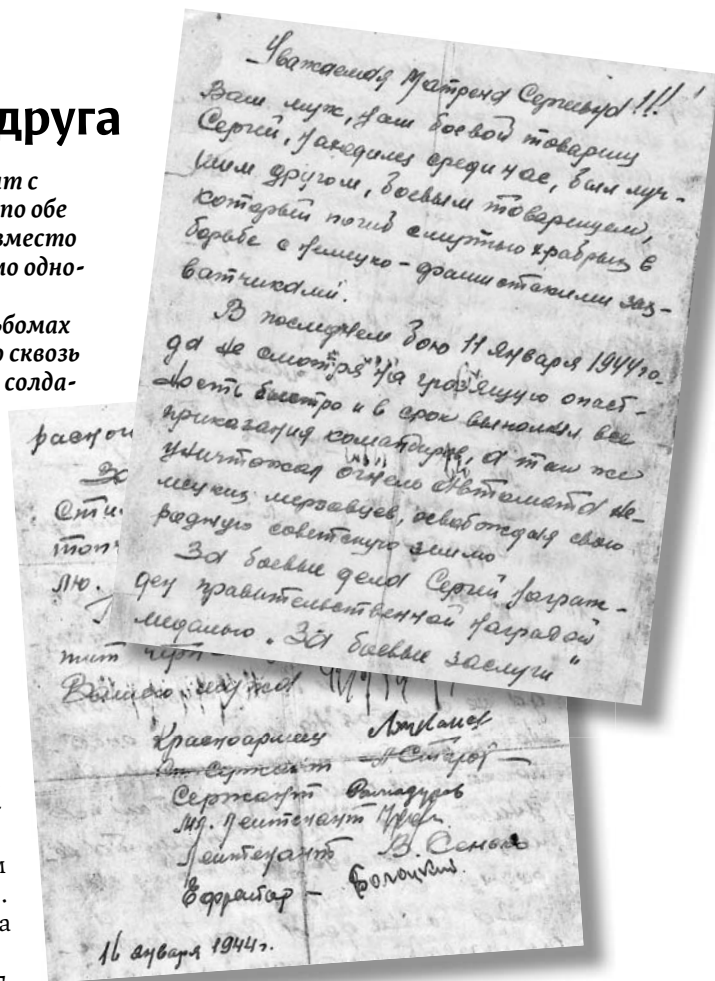 друга
т с
по обе
вместо
мо одно-
ьбомах
о сквозь
солда-
Уважаемая Матрена Сергеевна!!!
Ваш муж, наш боевой товарищ
Сергей, находилец среди нас, был луч-
шим другом, боевым товарищем,
который погиб смертью храбрых в
борьбе с немецко-фашистскими зах-
ватчиками.
В последнем бою 11 января 1944 го-
да не смотря на грозящую опаст-
ность быстро и в срок выполнял все
приказания командиров, а так же
уничтожал огнем автомата не-
мецких мерзавцев, освобождая свою
родную советскую землю
За боевые дела Сергей награж-
ден правительственной наградой
медалью "За боевые заслуги"
За
лю.
Вашего мужа
Красноармеец
Сержант
Сержант
Мл. лейтенант
Лейтенант В.
Ефрейтор –
16 января 1944 г.
а